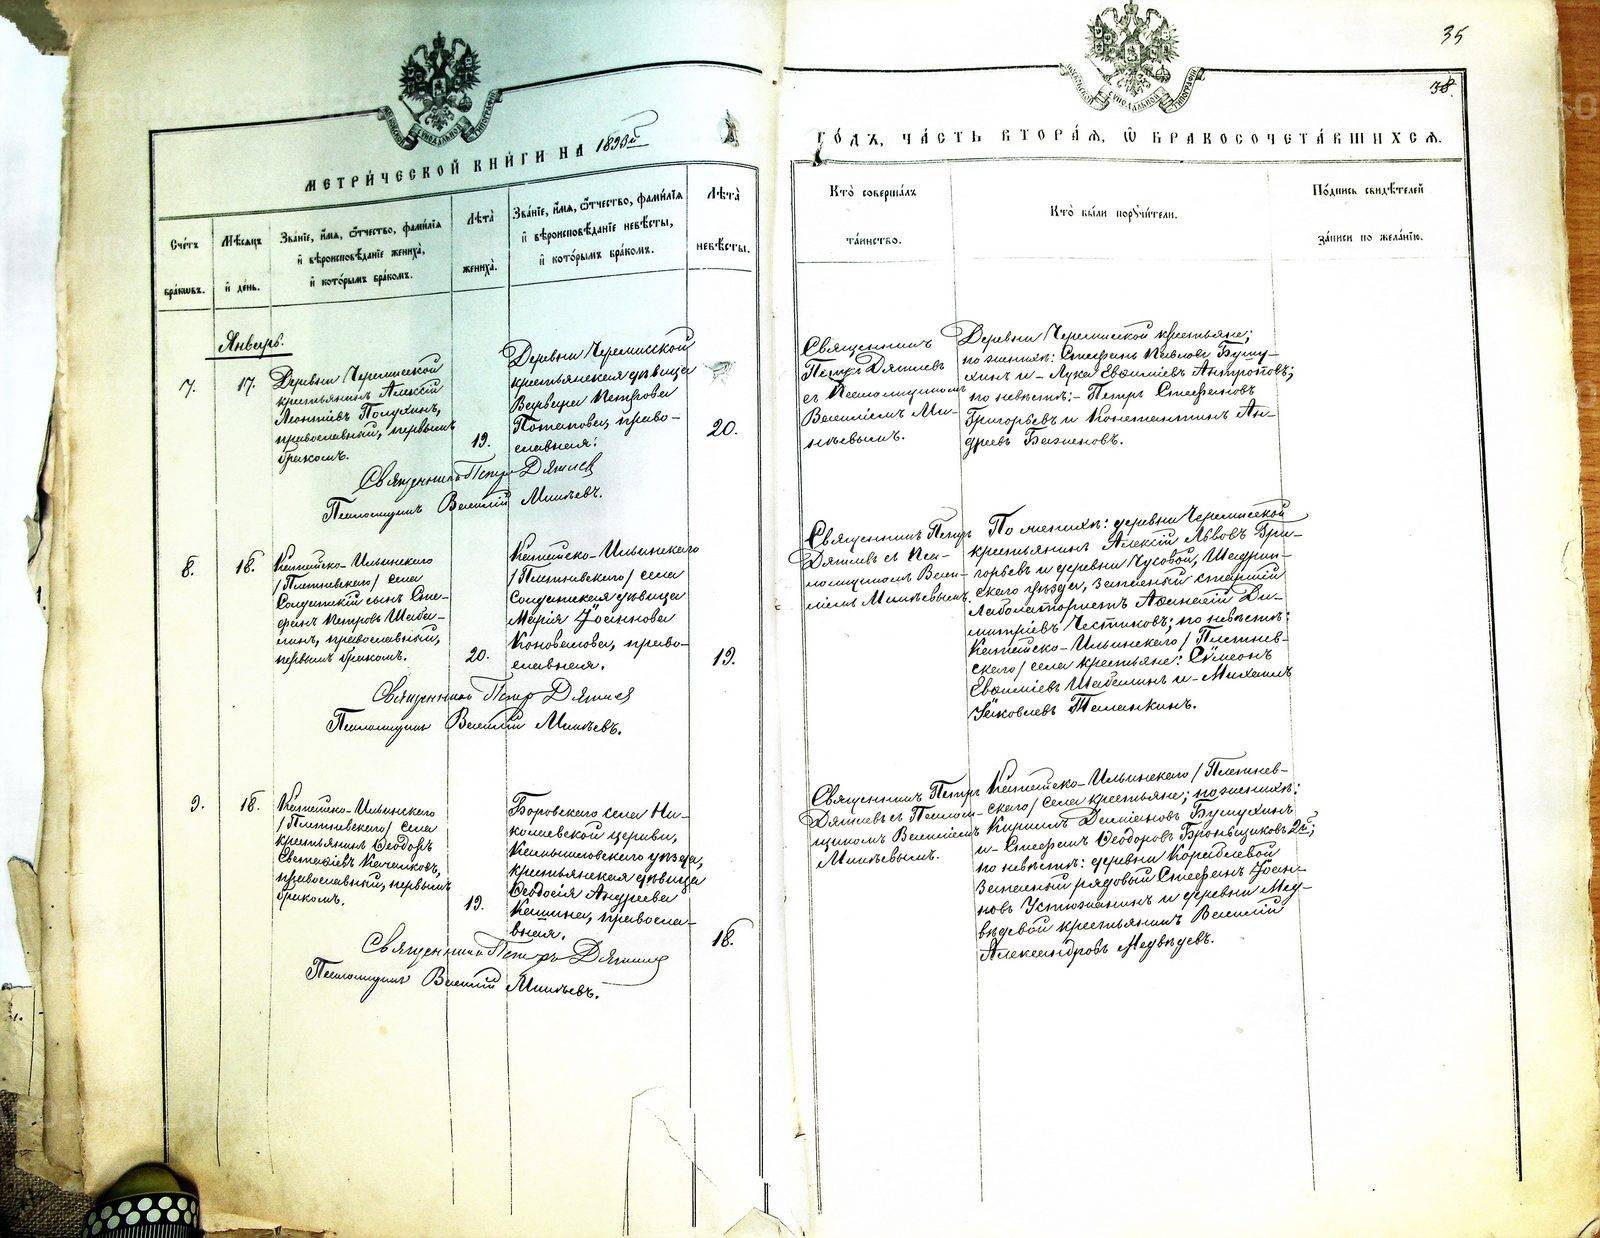 35
38.
МЕТРИ́ЧЕСКОЙ КНИ́ГИ НА 1899й
ГО́ДЪ, ЧА́СТЬ ВТОРА́Я, Ѿ БРАКОСОЧЕТА́ВШИХСЯ.
Сче́тъ бра́кѡвъ.
Мѣ́сяцъ и҆ де́нь.
Зва́нїе, и҆́мя, ѻ҆́тчество, фами́лїя
и҆ вѣроисповѣ́данїе жениха̀,
и҆ кото́рымъ бра́комъ.
Лѣ́та жениха̀.
Зва́нїе, и҆́мя, ѻ҆́тчество, фами́лїя
и҆ вѣроисповѣ́данїе невѣ́сты,
и҆ кото́рымъ бра́комъ.
Лѣ́та невѣ́сты.
Кто̀ соверша́лъ
та́инство.
Кто̀ бы́ли порꙋчи́тели.
По́дпись свидѣ́телей
за́писи по жела́нїю.
Январь.
7.
17.
Деревни Черемисской
крестьянинъ Алексій
Леонтіевъ Полухинъ,
православный, первымъ
бракомъ.
19.
Деревни Черемисской
крестьянская дѣвица
Варвара Петрова
Потапова, право-
славная.
20.
Священникъ
Петръ Дягилевъ
съ Псаломщикомъ
Василіемъ Ми-
нѣевымъ.
Деревни Черемисской крестьяне;
по женихѣ: Стефанъ Павловъ Бушу-
хинъ и Лука Евѳиміевъ Антроповъ;
по невѣстѣ: Петръ Стефановъ
Григорьевъ и Константинъ Ан-
дреевъ Баженовъ.
Священникъ Петръ Дягилев
Псаломщикъ Василій Минѣевъ.
8.
18.
Катайско-Ильинскаго
/Плетневскаго/ села
Солдатскій сынъ Сте-
фанъ Петровъ Шаба-
линъ, православный,
первымъ бракомъ.
20.
Катайско-Ильинскаго
/Плетневскаго/ села
Солдатская дѣвица
Марія Іоаннова
Коновалова, право-
славная.
19.
Священникъ Петръ
Дягилевъ съ Пса-
ломщикомъ Васи-
ліемъ Минѣевымъ.
По женихѣ: деревни Черемисской
крестьянинъ Алексій Львовъ Гри-
горьевъ и деревни Чусовой, Шадрин-
скаго уѣзда, запасный старшій
Лаболатористъ Аѳанасій Ди-
митріевъ Честиковъ; по невѣстѣ:
Катайско-Ильинскаго /Плетнев-
скаго/ села крестьяне: Сѵмеонъ
Евѳиміевъ Шабалинъ и Михаилъ
Іаковлевъ Таланкинъ.
Священникъ Петр Дягилев
Псаломщикъ Василій Минѣевъ.
9.
18.
Катайско-Ильинскаго
/Плетневскаго/ села
крестьянинъ Ѳеодоръ
Евстафіевъ Качалковъ,
православный, первымъ
бракомъ.
19.
Боровскаго села Ни-
колаевской церкви,
Камышловскаго уѣзда,
крестьянская дѣвица
Ѳеодосія Андреева
Кашина, правосла-
вная.
18.
Священникъ Петръ
Дягилевъ съ Псалом-
щикомъ Василіемъ
Минѣевымъ.
Катайско-Ильинскаго /Плетнев-
скаго/ села крестьяне; по женихѣ:
Кириллъ Даміановъ Бушухинъ
и Стефанъ Ѳеодоровъ Броньщиковъ 2й;
по невѣстѣ: деревни Кораблевой
запасный рядовый Стефанъ Іоан-
новъ Устюжанинъ и деревни Мед-
вѣдевой крестьянинъ Василій
Александровъ Медвѣдевъ.
Священникъ Петръ Дягилев
Псаломщикъ Василій Минѣевъ.